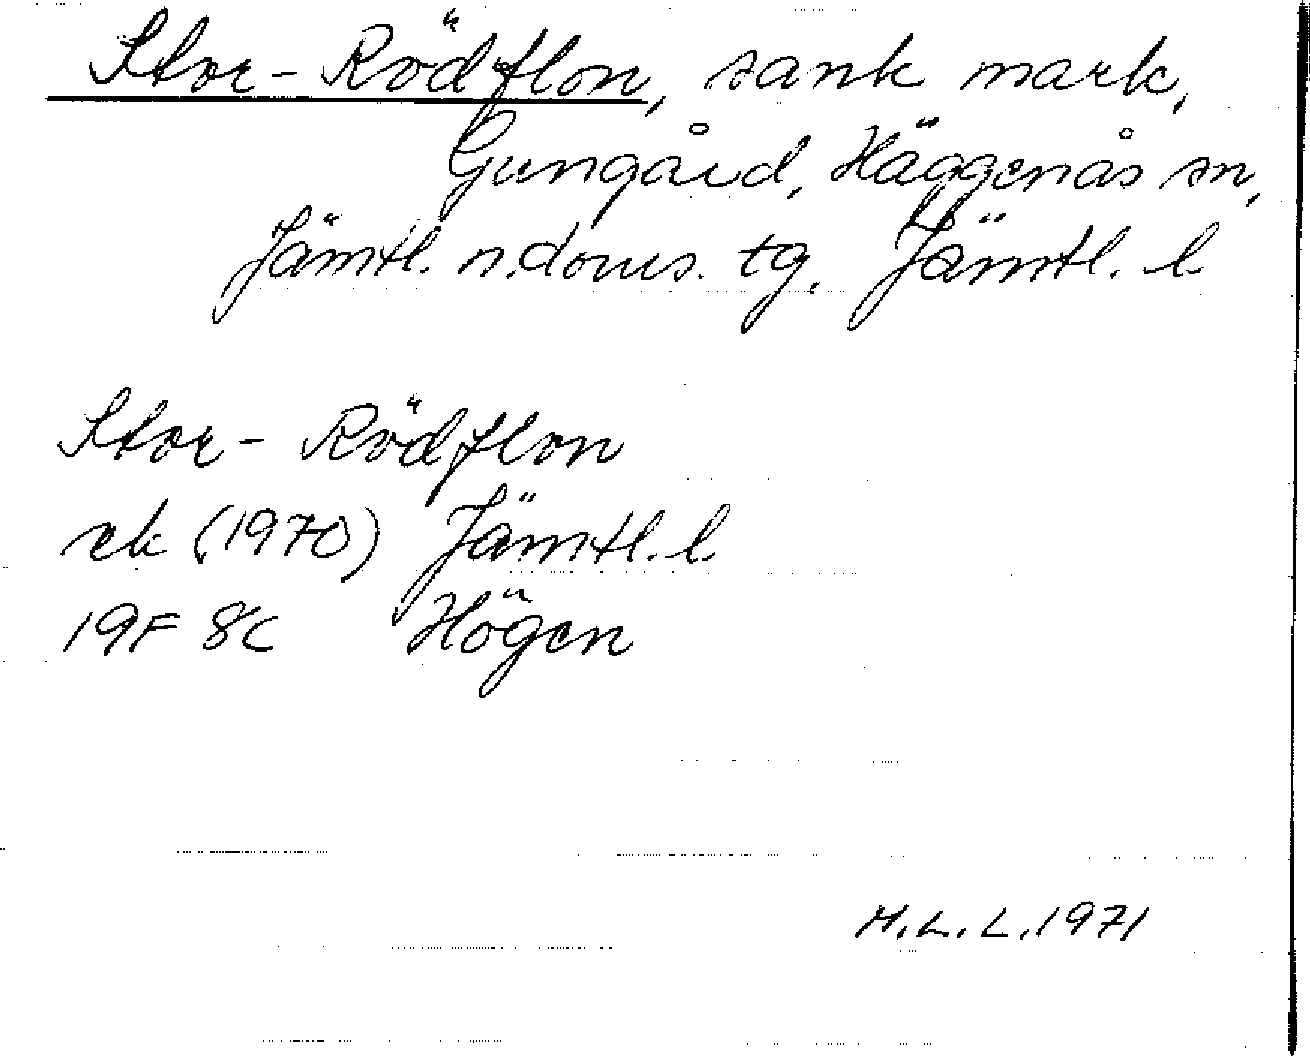 Stor-Rödflon, sank mark,
Gungård, Häggenås sn,
Jämtl. n. doms. tg, Jämtl. l.
Stor-Rödflon
ek (1970) Jämtl. l.
19F 8c Högen
H.L.L. 1971